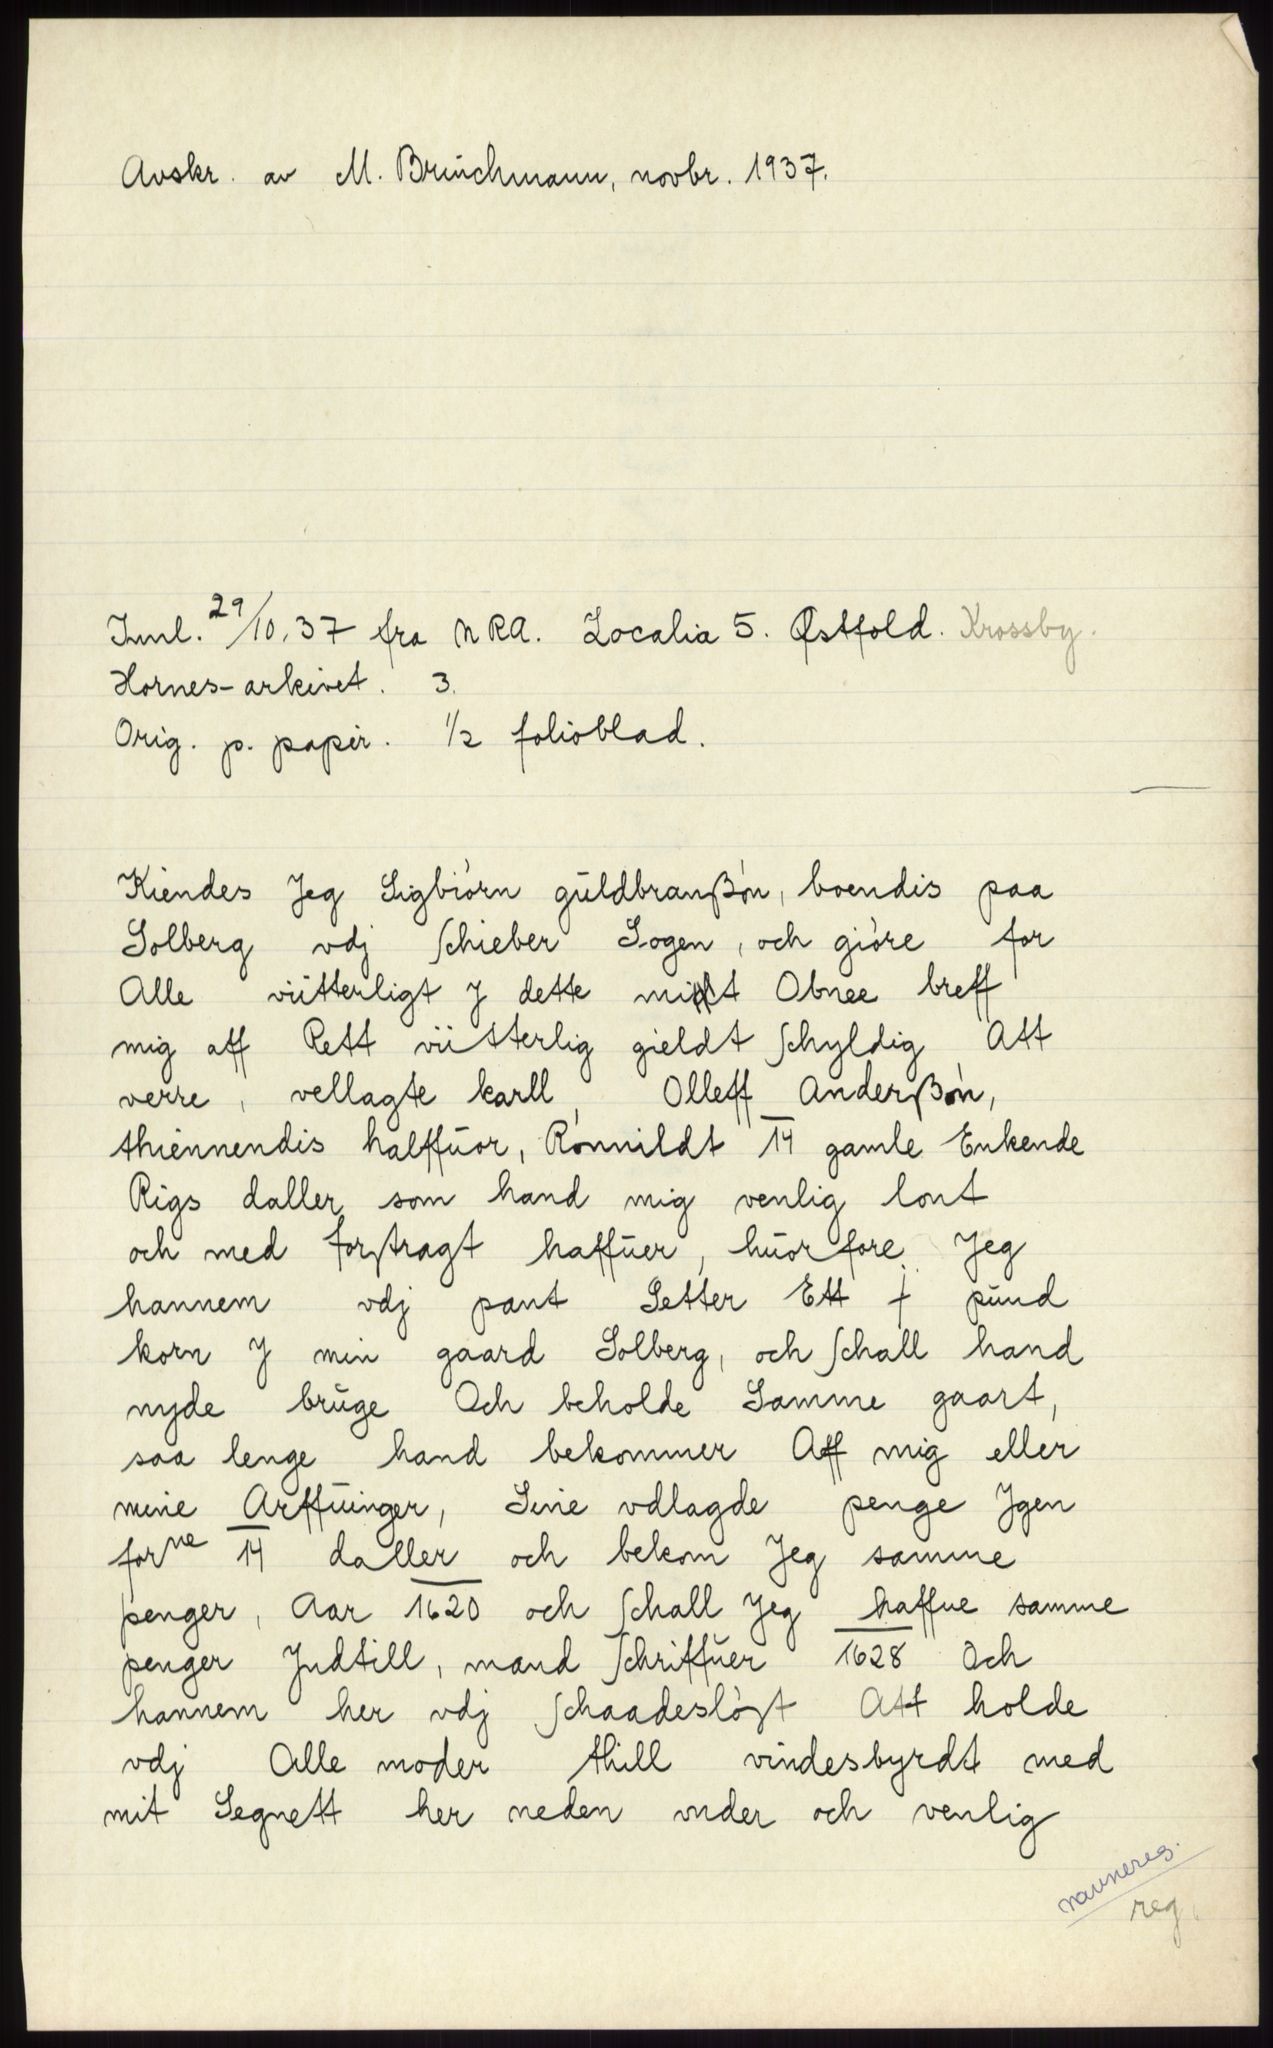 Avskr. av M. Brinchmann, novbr. 1937.
Innl. 29/10.37 fra NRA. Localia 5. Østfold. Krossby.
Hornes-arkivet. 3.
Orig. p. papir. 1/2 folioblad.
Kiendes Jeg Sigbiórn gŭldbranßón, boendis paa
Solberg vdj schieber Sogen, och gióre for
Alle vitterligt J dette mit Obnee breff
mig aff Rett vitterlig gieldt schyldig Att
verre, vellagte karll, Olleff Anderßón,
thiennendis halffŭor, Rónnildt 14 gamle Enkende
Rigs daller som hand mig venlig lont
och med forstragt haffŭer, hŭorfore Jeg
hannem vdj pant Setter Ett † pŭnd
korn J min gaard Solberg, och schall hand
nyde brŭge Och beholde Samme gaart,
saa lenge hand bekommer Aff mig eller
mine Arffŭinger, Sine vdlagde penge Jgen
forne 14 daller och bekom Jeg samme
penger, Aar 1620 och schall Jeg haffue samme
penger Jndtill, mand schriffŭer 1628 Och
hannem her vdj schaadesløst Att holde
vdj Alle moder thill vindesbyrdt med
mit Segnett her neden vnder och venlig
navnereg.
reg.